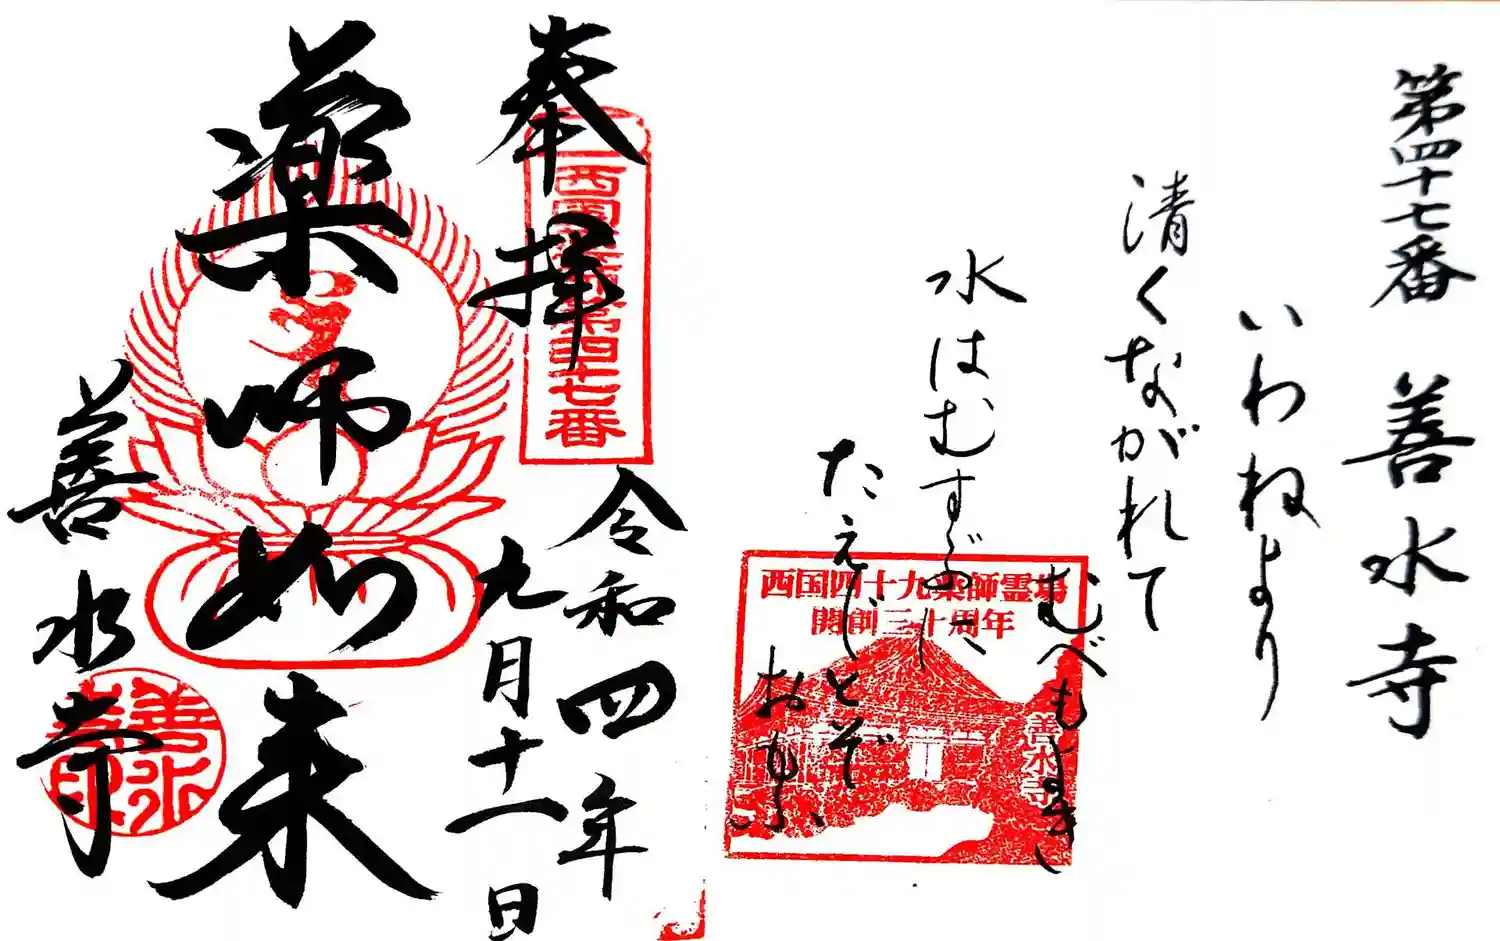 第四十七番 善水寺
いわねより
清くながれて
むべもよきし
水はむすぶに
たえじとぞ
おもふ
西国四十九薬師霊場
開創三十周年
善水寺
奉拝
西國薬師第四十七番
令和四年
九月十一日
薬師如来
善水寺
善水寺印